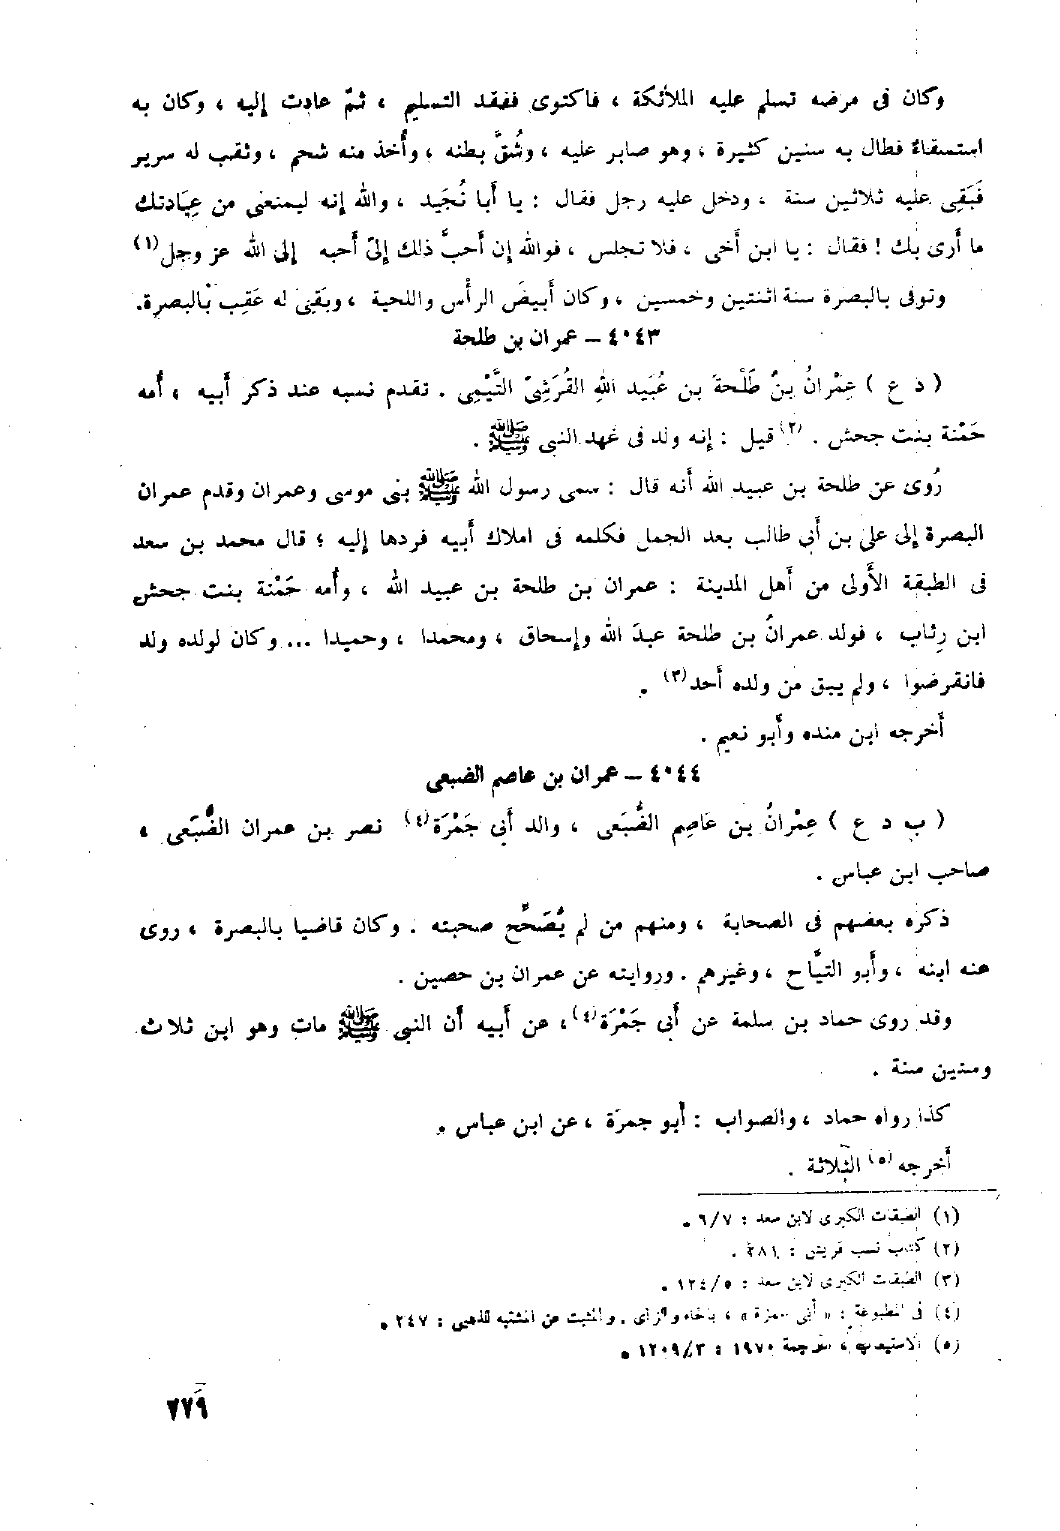 وكان فى مرضه تسلم عليه الملائكة ، فاكتوى ففقد التسليم ، ثمّ عادت إليه ، وكان به
استسقاءٌ فطال به سنين كثيرة ، وهو صابر عليه ، وشُقَّ بطنه ، وأُخذ منه شحم ، وثقب له سرير
فَبَقِى عليه ثلاثين سنة ، ودخل عليه رجل فقال : يا أَبا نُجَيد ، والله إنه ليمنعنى من عِيَادتك
ما أَرى بك ! فقال : يا ابن أَخى ، فلا تجلس ، فوالله إن أَحبَّ ذلك إلىّ أَحبه إلى الله عز وجل (١)
وتوفى بالبصرة سنة اثنتين وخمسين ، وكان أَبيضَ الرأْس واللحية ، وبَقى له عَقِب بالبصرة.
٤٠٤٣ – عمران بن طلحة
( د ع ) عِمْرانُ بنُ طَلْحةَ بن عُبَيد اللهِ القُرَشِىّ التَّيْمِى . تقدم نسبه عند ذكر أَبيه ، أُمه
حَمْنة بنت جحش . (٢) قيل : إنه ولد فى عهد النبى ﷺ .
رُوى عن طلحة بن عبيد الله أنه قال : سمى رسول الله ﷺ بنىّ موسى وعمران وقدم عمران
البصرة إلى على بن أَبى طالب بعد الجمل فكلمه فى املاك أَبيه فردها إليه ؛ قال محمد بن سعد
فى الطبقة الأَولى من أَهل المدينة : عمران بن طلحة بن عبيد الله ، وأُمه حَمْنة بنت جحش
ابن رِئاب ، فولد عمرانُ بن طلحة عبدَ الله وإسحاق ، ومحمدا ، وحميدا ... وكان لولده ولد
فانقرضوا ، ولم يبق من ولده أَحد (٣) .
أَخرجه ابن منده وأَبو نعيم .
٤٠٤٤ – عمران بن عاصم الضبعى
( ب د ع ) عِمْرانُ بن عَاصِم الضُّبَعى ، والد أَبى جَمْرَة (٤) نصر بن عمران الضُّبَعى ،
صاحب ابن عباس .
ذكره بعضهم فى الصحابة ، ومنهم من لم يُصَحِّح صحبته . وكان قاضيا بالبصرة ، روى
عنه ابنه ، وأَبو التيَّاح ، وغيرهم . وروايته عن عمران بن حصين .
وقد روى حماد بن سلمة عن أَبى جَمْرَة (٤)، عن أَبيه أَن النبى ﷺ مات وهو ابن ثلاث
وستين سنة .
كذا رواه حماد ، والصواب : أَبو جمرَة ، عن ابن عباس .
أَخرجه (٥) الثلاثة .
(١) الطبقات الكبرى لابن سعد : ٦/٧ .
(٢) كتاب نسب قريش : ٢٨١ .
(٣) الطبقات الكبرى لابن سعد : ١٢٤/٥ .
(٤) فى المطبوعة : « أبى حمزة » ، بالحاء والزاى . والمثبت عن المشتبه للذهبى : ٢٤٧ .
(٥) الاستيعاب ، ترجمة ١٩٧٠ : ١٢٠٩/٣ .
٢٧٩